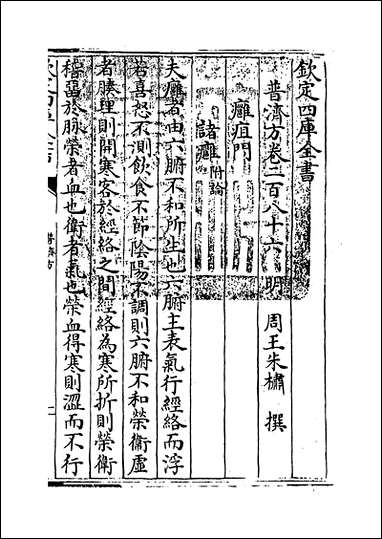 欽定四庫全書
普濟方卷二百八十六 明 周王朱橚 撰
癰疽門
諸癰附論
夫癰者由六腑不和所生也六腑主表氣行經絡而浮
若喜怒不測飲食不節陰陽不調則六腑不和榮衛虛
者腠理則開寒客於經絡之間經絡為寒所折則榮衛
稽留於脉榮者血也衛者氣也榮血得寒則澀而不行
普濟方